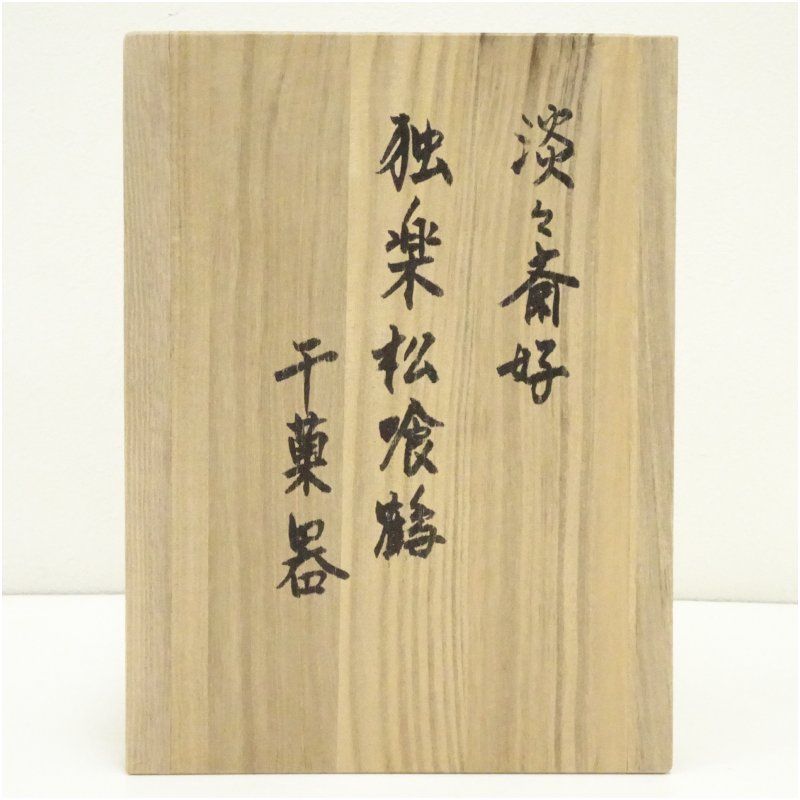 淡々斎好
独楽松喰鶴
干菓器